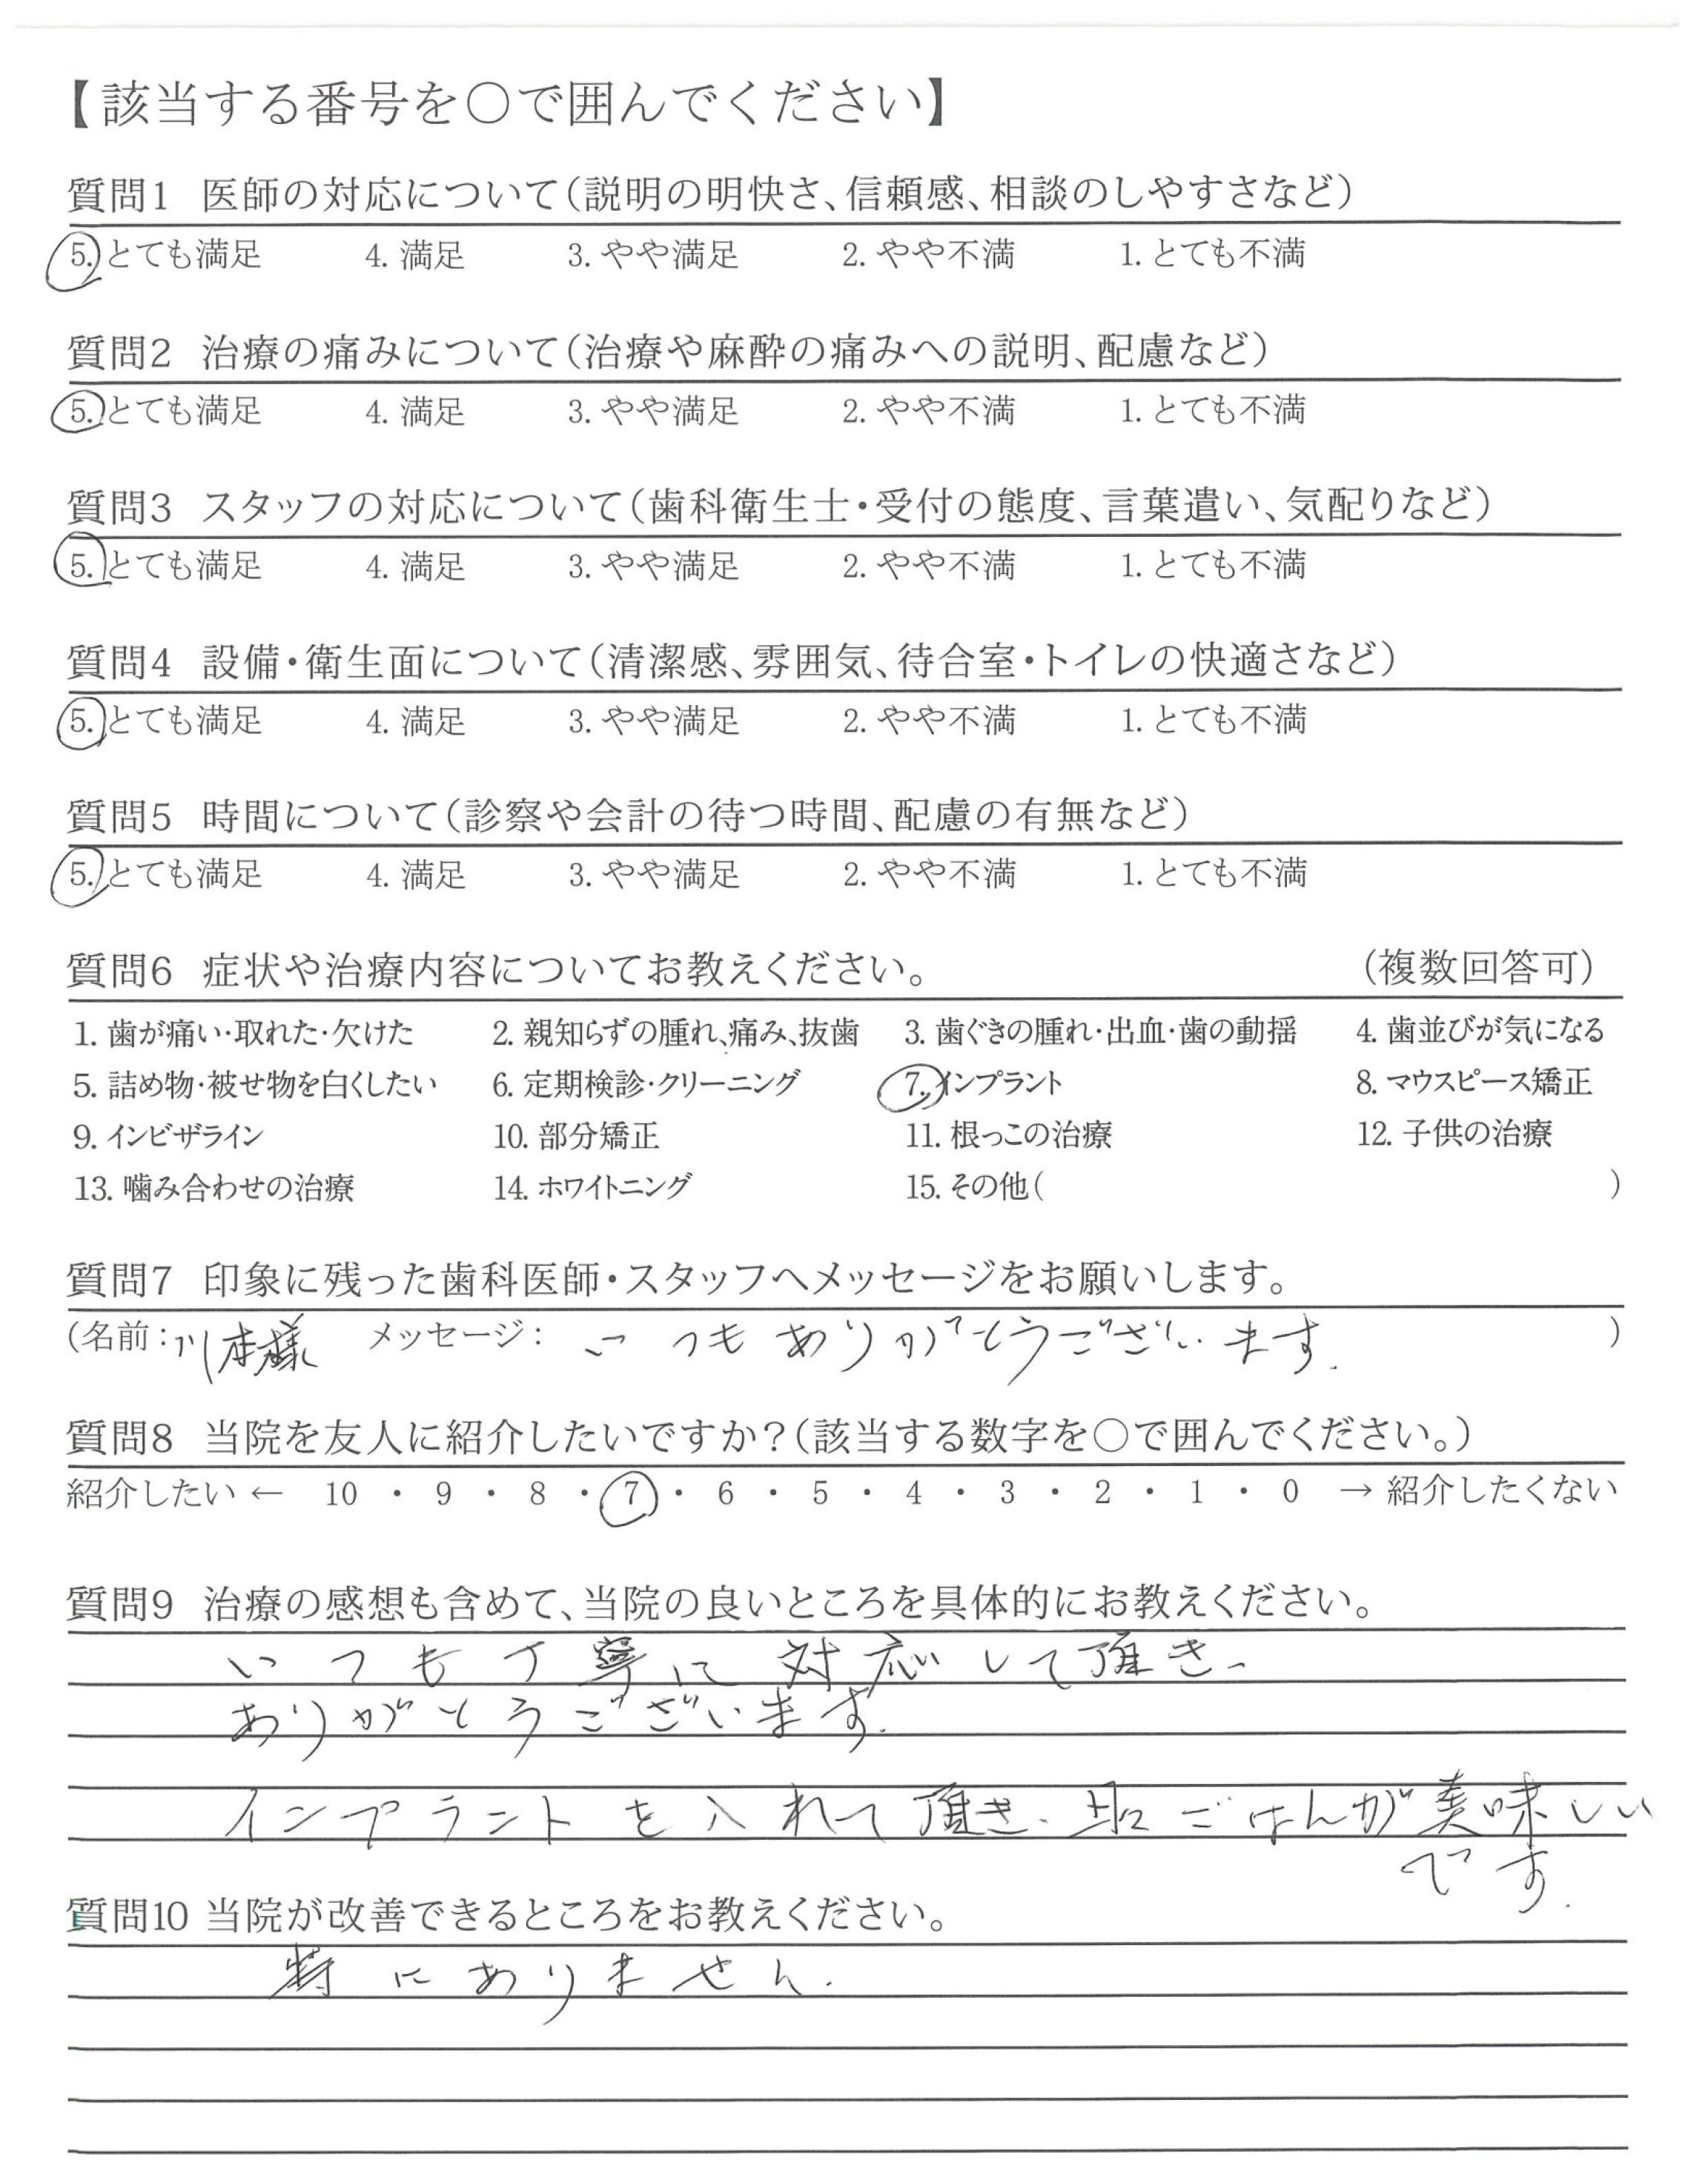 【該当する番号を○で囲んでください】
質問1 医師の対応について(説明の明快さ、信頼感、相談のしやすさなど)
5. とても満足 4. 満足 3. やや満足 2. やや不満 1. とても不満
質問2 治療の痛みについて(治療や麻酔の痛みへの説明、配慮など)
5. とても満足 4. 満足 3. やや満足 2. やや不満 1. とても不満
質問3 スタッフの対応について(歯科衛生士・受付の態度、言葉遣い、気配りなど)
5. とても満足 4. 満足 3. やや満足 2. やや不満 1. とても不満
質問4 設備・衛生面について(清潔感、雰囲気、待合室・トイレの快適さなど)
5. とても満足 4. 満足 3. やや満足 2. やや不満 1. とても不満
質問5 時間について(診察や会計の待つ時間、配慮の有無など)
5. とても満足 4. 満足 3. やや満足 2. やや不満 1. とても不満
質問6 症状や治療内容についてお教えください。 (複数回答可)
1. 歯が痛い・取れた・欠けた 2. 親知らずの腫れ、痛み、抜歯 3. 歯ぐきの腫れ・出血・歯の動揺 4. 歯並びが気になる
5. 詰め物・被せ物を白くしたい 6. 定期検診・クリーニング 7. インプラント 8. マウスピース矯正
9. インビザライン 10. 部分矯正 11. 根っこの治療 12. 子供の治療
13. 噛み合わせの治療 14. ホワイトニング 15. その他( )
質問7 印象に残った歯科医師・スタッフへメッセージをお願いします。
(名前:川本様 メッセージ: いつもありがとうございます. )
質問8 当院を友人に紹介したいですか?(該当する数字を○で囲んでください。)
紹介したい ← 10 ・ 9 ・ 8 ・ 7 ・ 6 ・ 5 ・ 4 ・ 3 ・ 2 ・ 1 ・ 0 → 紹介したくない
質問9 治療の感想も含めて、当院の良いところを具体的にお教えください。
いつも丁寧に対応して頂き、
ありがとうございます.
インプラントを入れて頂き、ごはんが美味しい
です.
質問10 当院が改善できるところをお教えください。
特にありません.